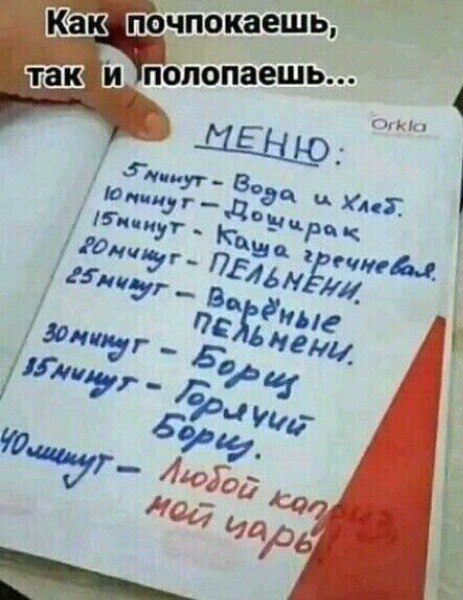 Как почпокаешь,
так и полопаешь...
Orkla
МЕНЮ:
5 минут - Вода и Хлеб.
10 минут - Доширак
15 минут - Каша гречневая.
20 минут - ПЕЛЬМЕНИ.
25 минут - Варёные
ПЕЛЬМЕНИ.
30 минут - Борщ
35 минут - Горячий
Борщ.
40 минут - Любой каприз
мой царь!